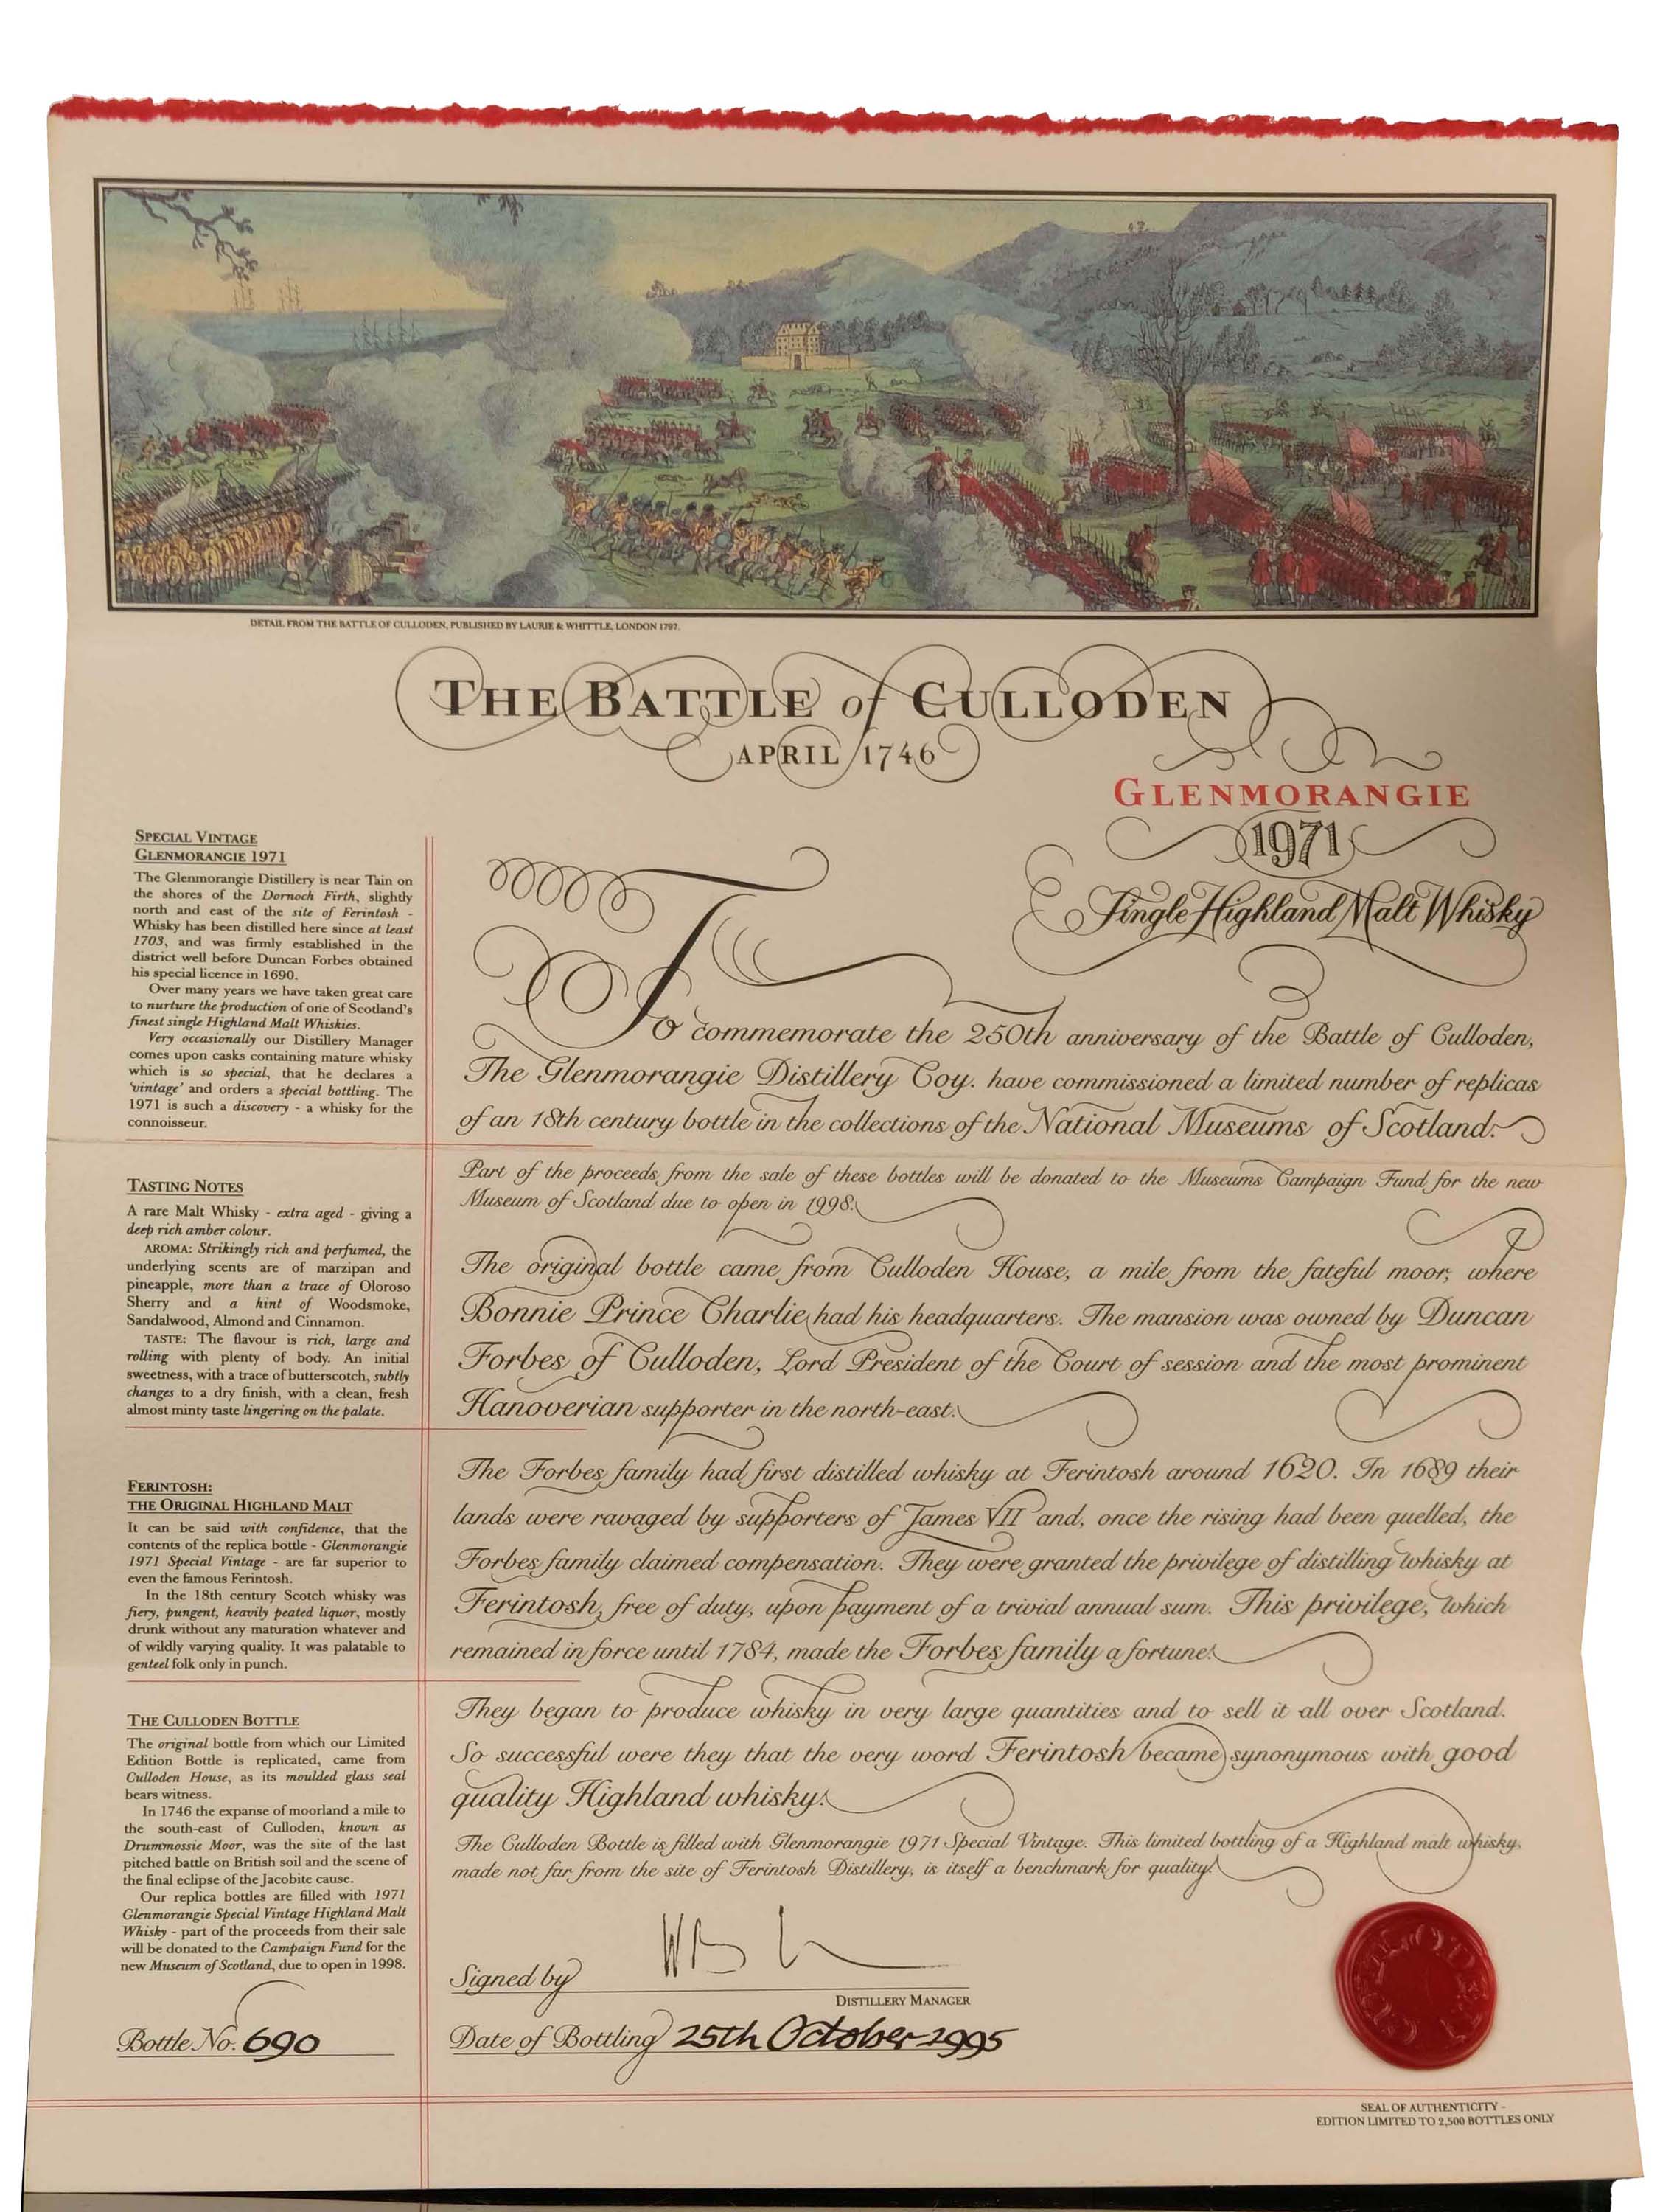 DETAIL FROM THE BATTLE OF CULLODEN, PUBLISHED BY LAURIE & WHITTLE, LONDON 1797.
THE BATTLE of CULLODEN
APRIL 1746
GLENMORANGIE
1971
Single Highland Malt Whisky
SPECIAL VINTAGE
GLENMORANGIE 1971
The Glenmorangie Distillery is near Tain on
the shores of the Dornoch Firth, slightly
north and east of the site of Ferintosh -
Whisky has been distilled here since at least
1703, and was firmly established in the
district well before Duncan Forbes obtained
his special licence in 1690.
Over many years we have taken great care
to nurture the production of one of Scotland's
finest single Highland Malt Whiskies.
Very occasionally our Distillery Manager
comes upon casks containing mature whisky
which is so special, that he declares a
'vintage' and orders a special bottling. The
1971 is such a discovery - a whisky for the
connoisseur.
TASTING NOTES
A rare Malt Whisky - extra aged - giving a
deep rich amber colour.
AROMA: Strikingly rich and perfumed, the
underlying scents are of marzipan and
pineapple, more than a trace of Oloroso
Sherry and a hint of Woodsmoke,
Sandalwood, Almond and Cinnamon.
TASTE: The flavour is rich, large and
rolling with plenty of body. An initial
sweetness, with a trace of butterscotch, subtly
changes to a dry finish, with a clean, fresh
almost minty taste lingering on the palate.
FERINTOSH:
THE ORIGINAL HIGHLAND MALT
It can be said with confidence, that the
contents of the replica bottle - Glenmorangie
1971 Special Vintage - are far superior to
even the famous Ferintosh.
In the 18th century Scotch whisky was
fiery, pungent, heavily peated liquor, mostly
drunk without any maturation whatever and
of wildly varying quality. It was palatable to
genteel folk only in punch.
THE CULLODEN BOTTLE
The original bottle from which our Limited
Edition Bottle is replicated, came from
Culloden House, as its moulded glass seal
bears witness.
In 1746 the expanse of moorland a mile to
the south-east of Culloden, known as
Drummossie Moor, was the site of the last
pitched battle on British soil and the scene of
the final eclipse of the Jacobite cause.
Our replica bottles are filled with 1971
Glenmorangie Special Vintage Highland Malt
Whisky - part of the proceeds from their sale
will be donated to the Campaign Fund for the
new Museum of Scotland, due to open in 1998.
Bottle No. 690
To commemorate the 250th anniversary of the Battle of Culloden,
The Glenmorangie Distillery Coy. have commissioned a limited number of replicas
of an 18th century bottle in the collections of the National Museums of Scotland.
Part of the proceeds from the sale of these bottles will be donated to the Museums Campaign Fund for the new
Museum of Scotland due to open in 1998.
The original bottle came from Culloden House, a mile from the fateful moor, where
Bonnie Prince Charlie had his headquarters. The mansion was owned by Duncan
Forbes of Culloden, Lord President of the Court of session and the most prominent
Hanoverian supporter in the north-east.
The Forbes family had first distilled whisky at Ferintosh around 1620. In 1689 their
lands were ravaged by supporters of James VII and, once the rising had been quelled, the
Forbes family claimed compensation. They were granted the privilege of distilling whisky at
Ferintosh, free of duty, upon payment of a trivial annual sum. This privilege, which
remained in force until 1784, made the Forbes family a fortune.
They began to produce whisky in very large quantities and to sell it all over Scotland.
So successful were they that the very word Ferintosh became synonymous with good
quality Highland whisky.
The Culloden Bottle is filled with Glenmorangie 1971 Special Vintage. This limited bottling of a Highland malt whisky,
made not far from the site of Ferintosh Distillery, is itself a benchmark for quality.
Signed by
DISTILLERY MANAGER
Date of Bottling 25th October 1995
SEAL OF AUTHENTICITY -
EDITION LIMITED TO 2,500 BOTTLES ONLY